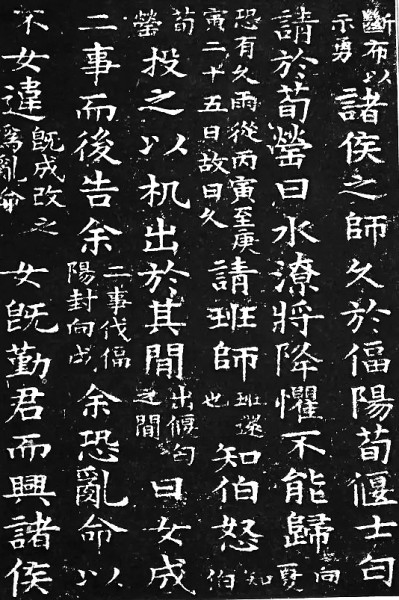 斷布以示勇諸侯之師久於偪陽荀偃士匄
請於荀罃曰水潦將降懼不能歸向夏
恐有久雨從丙寅至庚寅二十五日故曰久請班師班還也知伯怒知伯
荀罃投之以机出於其間出偃匄之間曰女成
二事而後告余二事伐偪陽封向戌余恐亂命以
不女違旣成改之爲亂命女旣勤君而興諸侯